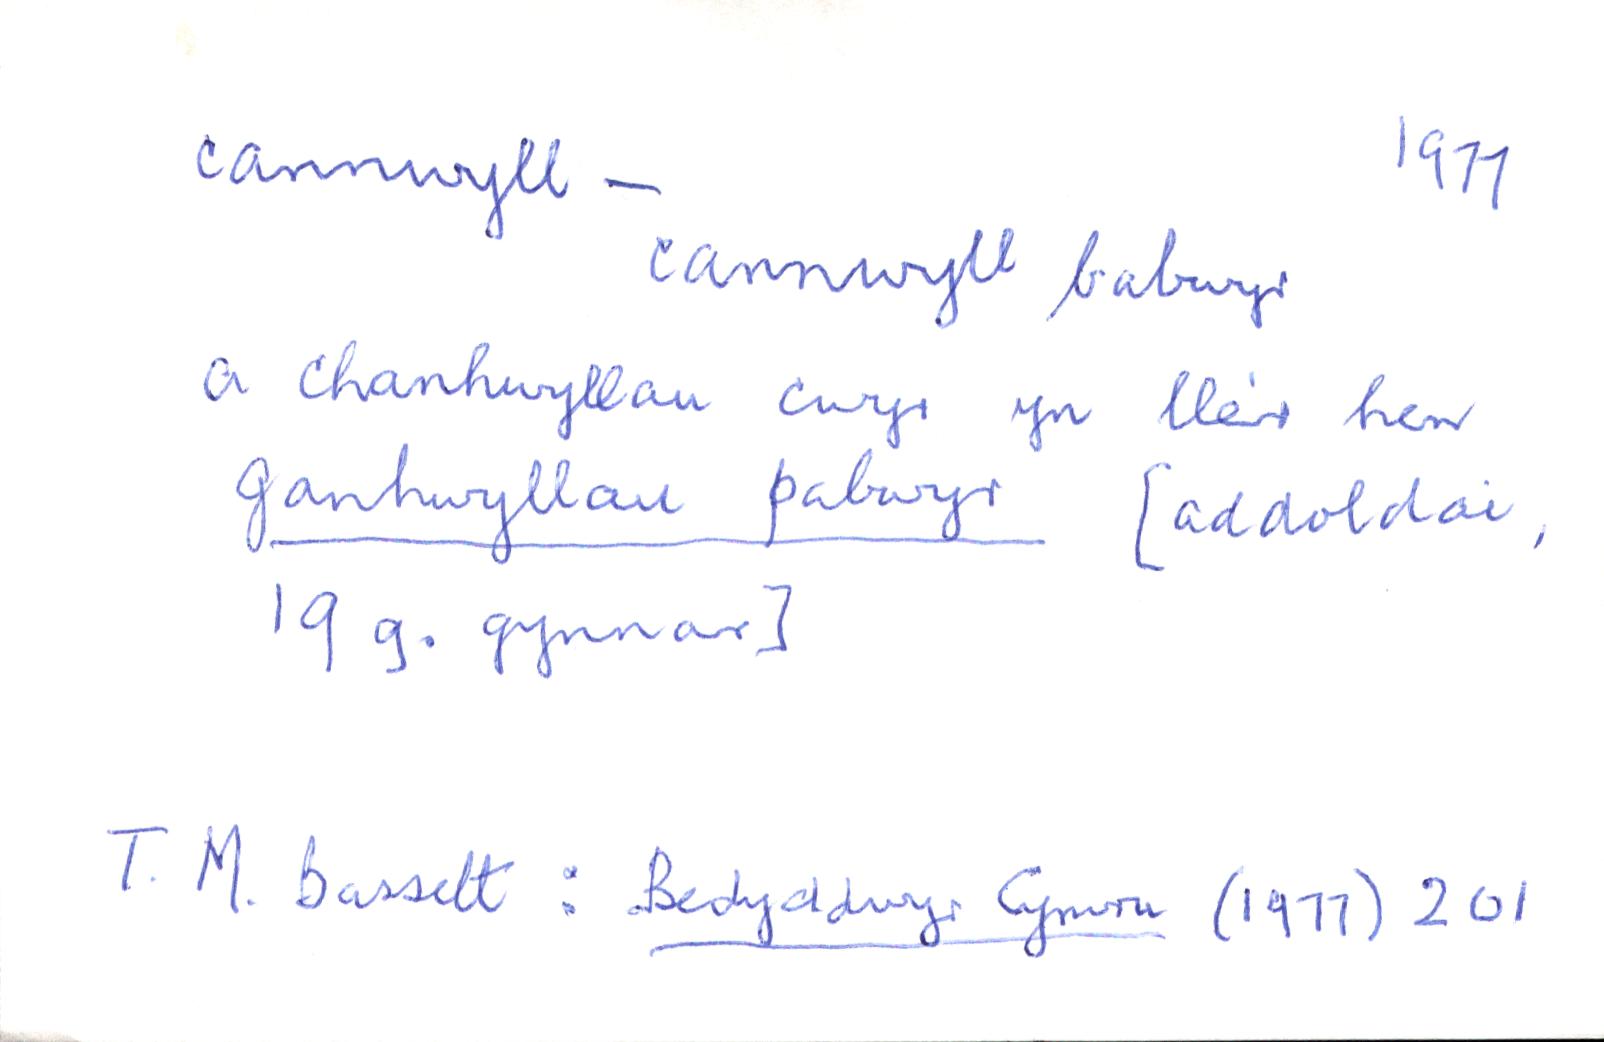 cannwyll — 1977
cannwyll babwyr
a chanhwyllau cwyr yn lle'r hen
ganhwyllau pabwyr [addoldai,
19 g. gynnar]
T. M. Bassett : Bedyddwyr Cymru (1977) 201